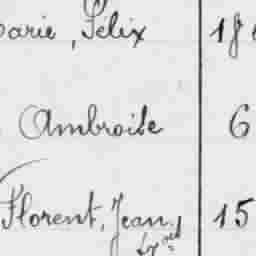 Félix 18
Ambroise 6
Florent, Jean 15